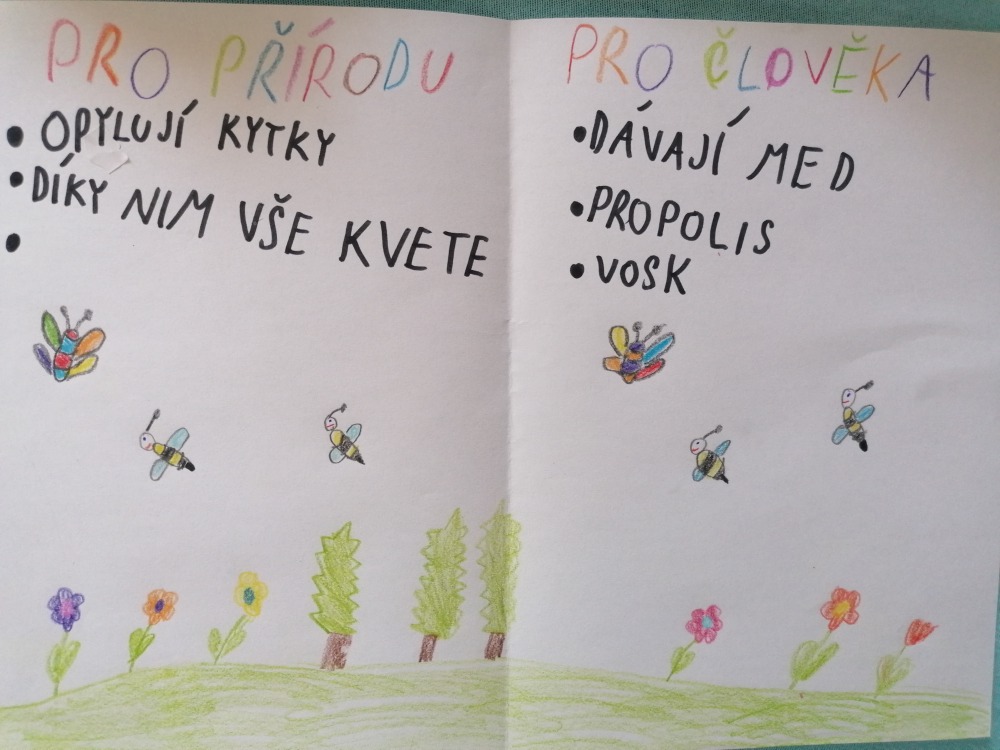 PRO PŘÍRODU
• OPYLUJÍ KYTKY
• DÍKY NIM VŠE KVETE
•
PRO ČLOVĚKA
• DÁVAJÍ MED
• PROPOLIS
• VOSK